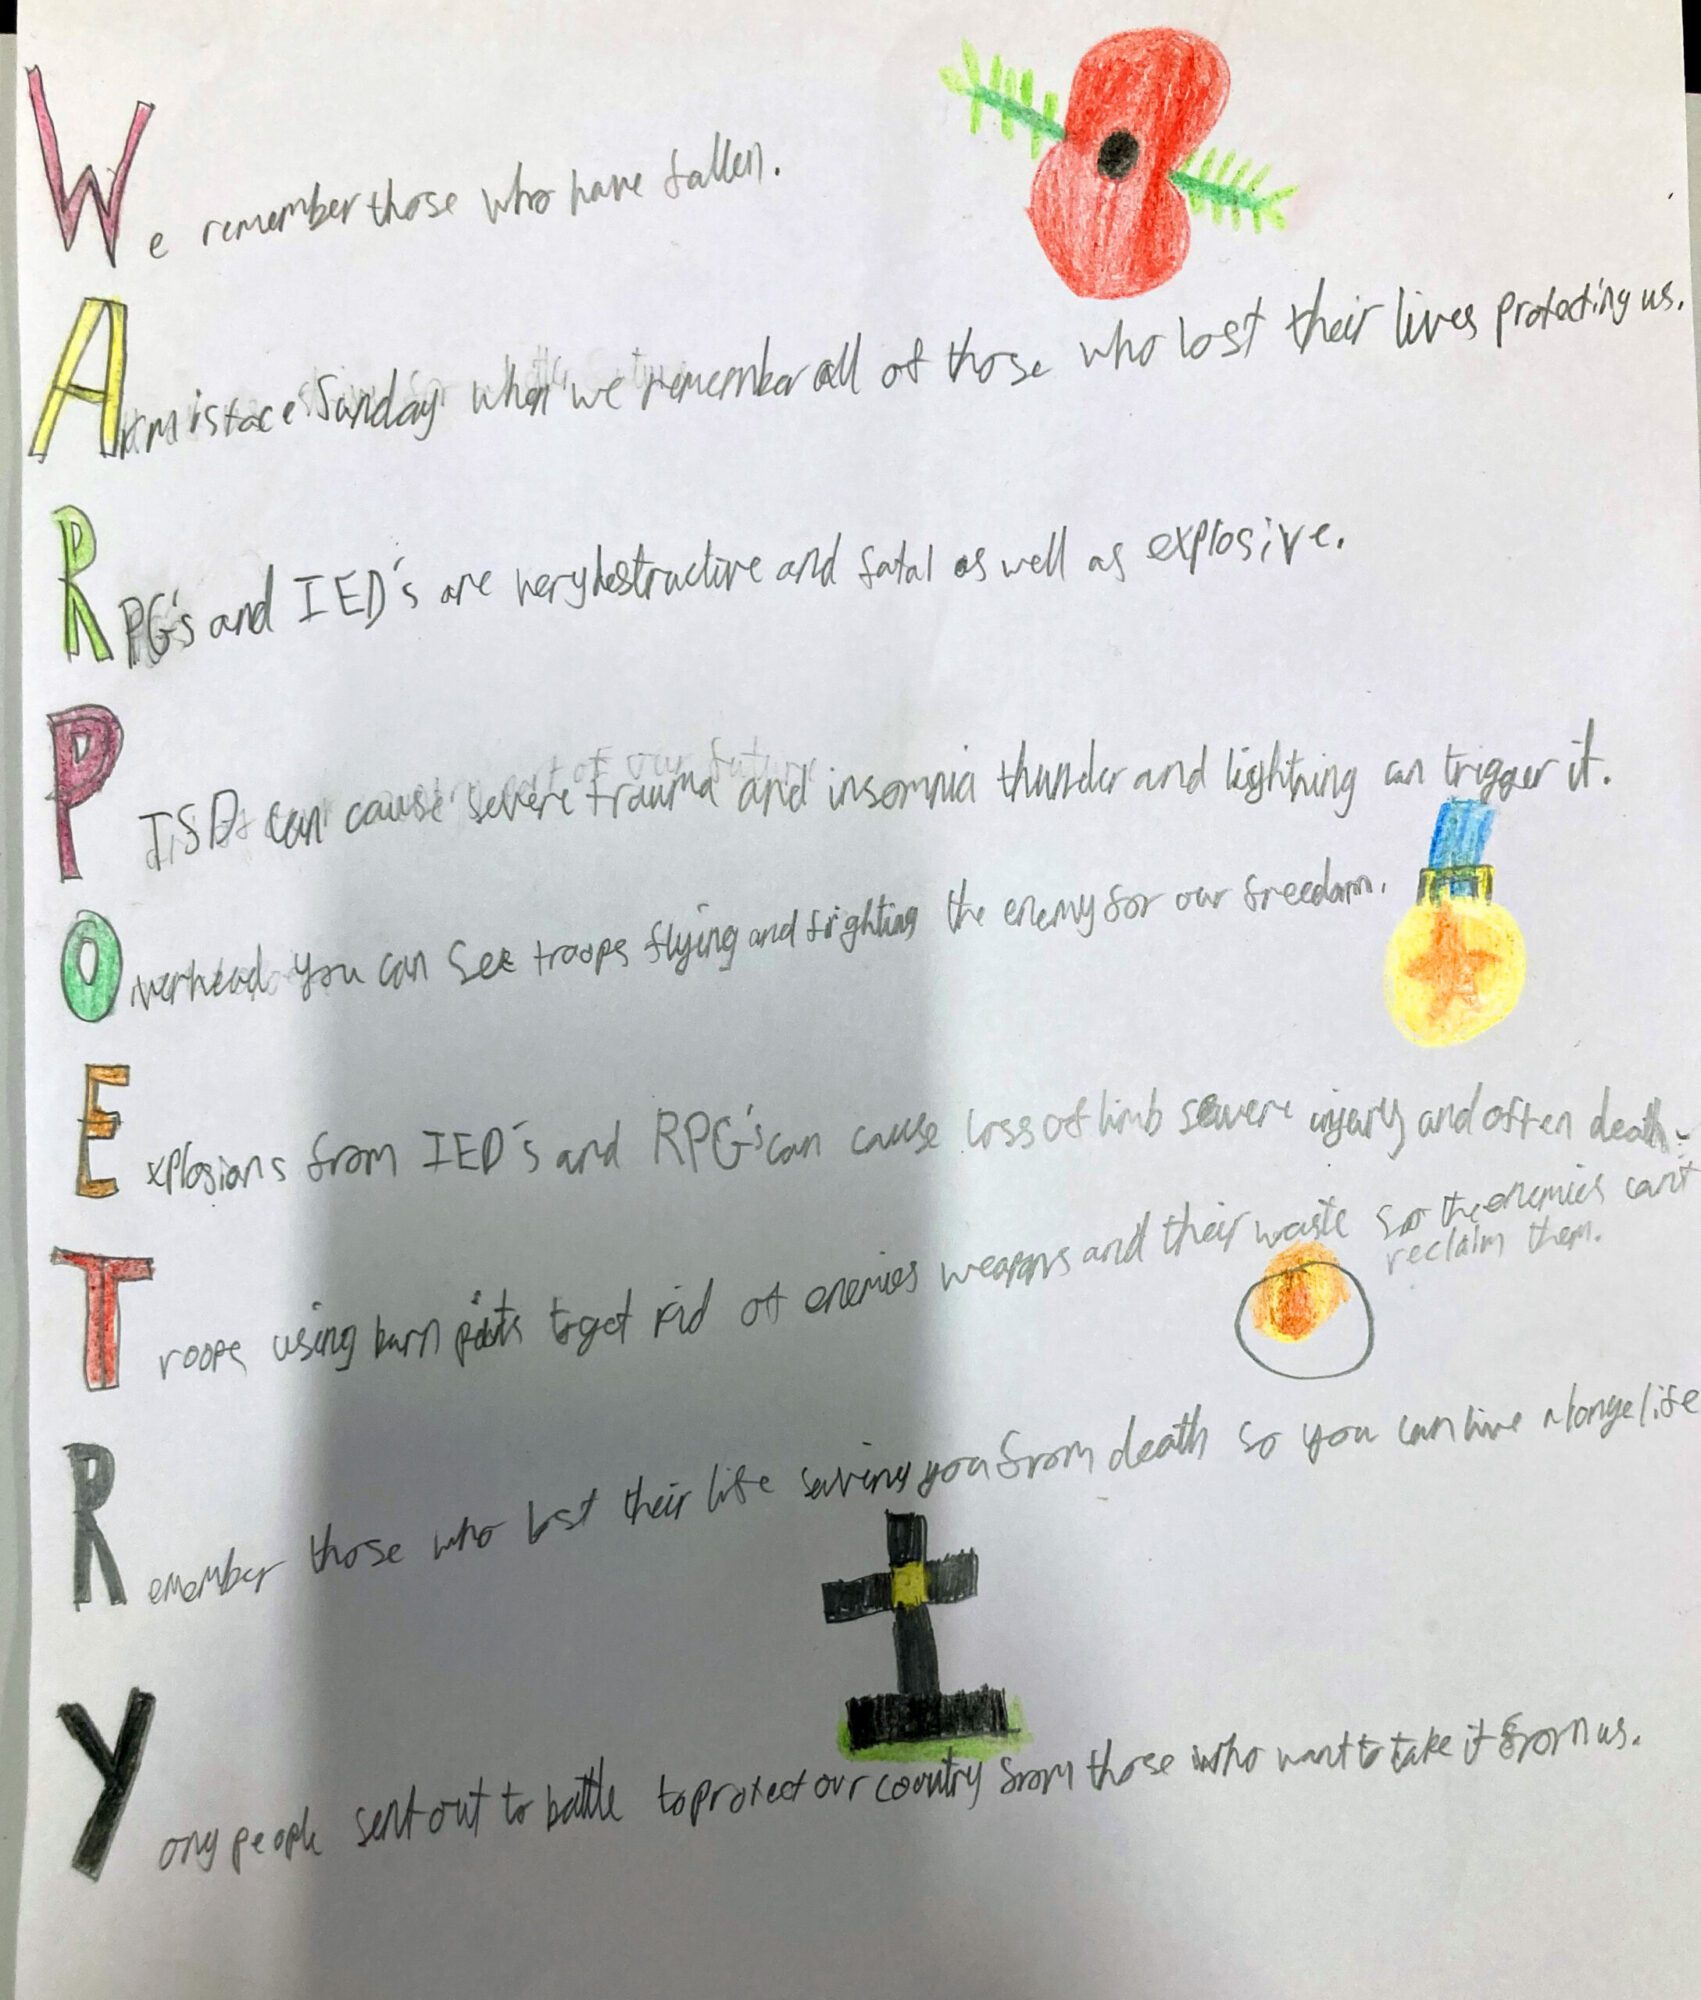 We remember those who have fallen.
Armistace Sunday when we remember all of those who lost their lives protecting us.
RPG's and IED's are very destructive and fatal as well as explosive.
PTSD can cause severe trauma and insomnia thunder and lightning can trigger it.
Overhead you can see troops flying and frighting the enemy for our freedom.
Explosions from IED's and RPG's can cause loss of limb severe injury and often death.
Troops using burn pits to get rid of enemies weapons and their waste so the enemies can't
reclaim them.
Remember those who lost their life saving you from death so you can live a longe life
Yong people sent out to battle to protect our country from those who want to take it from us.